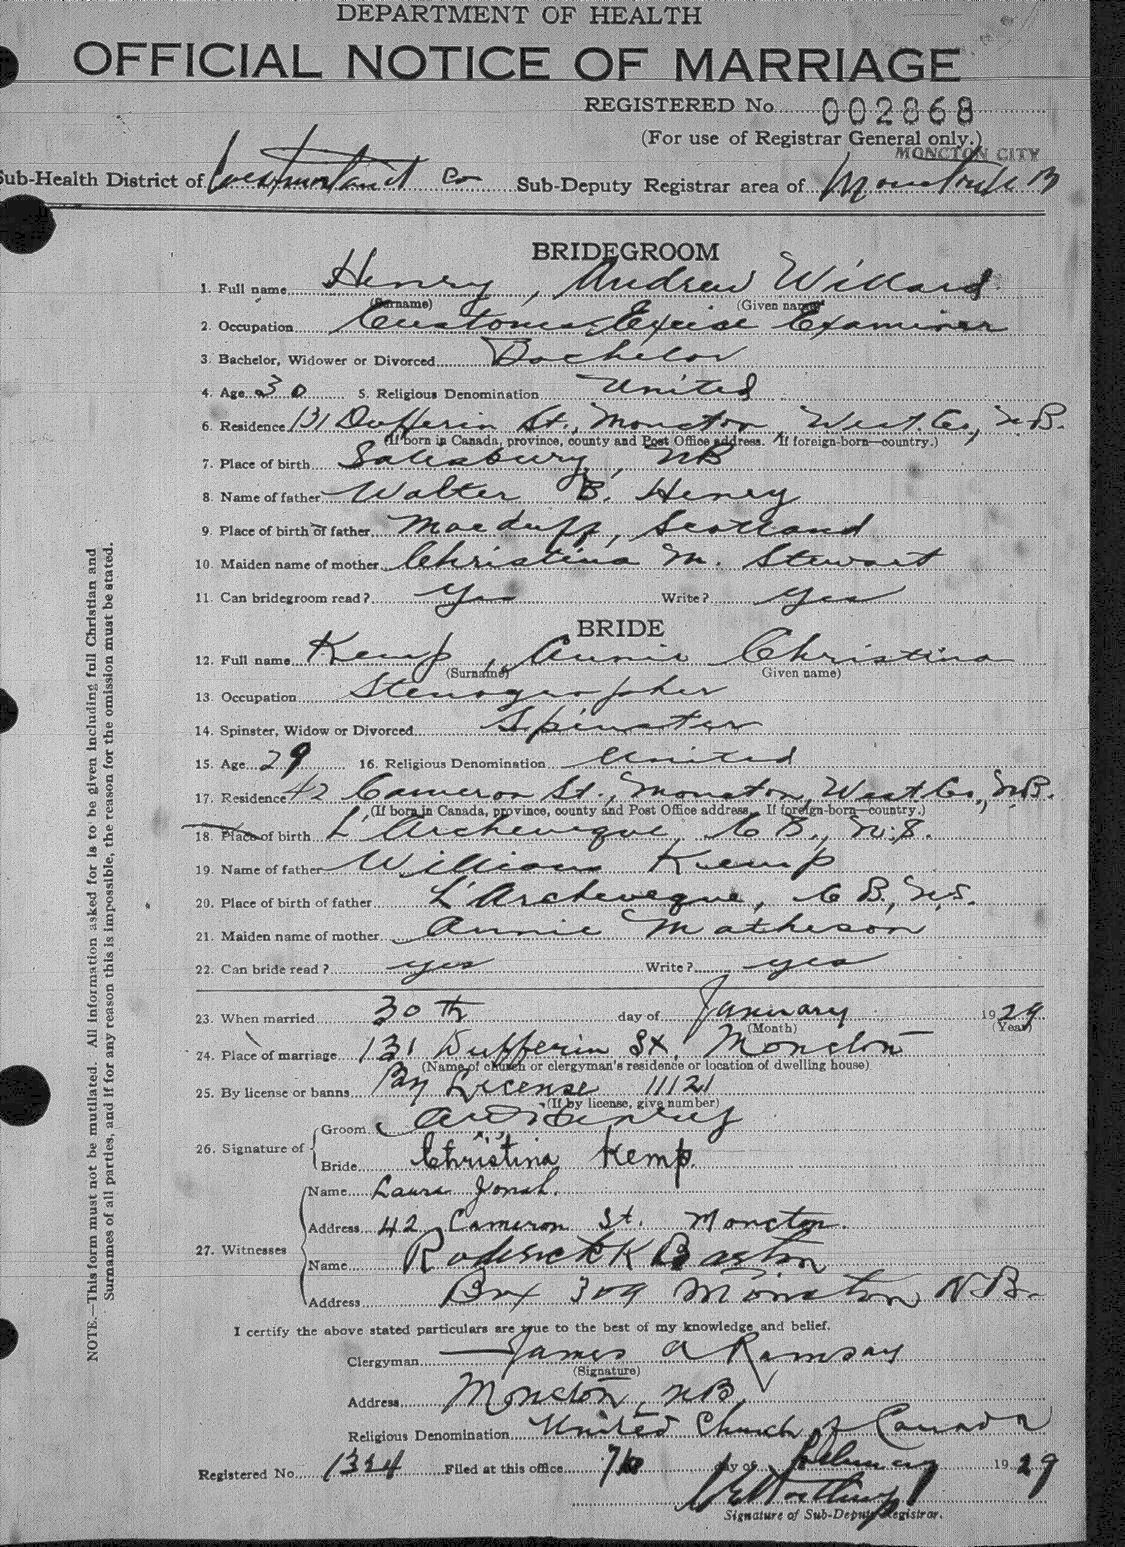 DEPARTMENT OF HEALTH
OFFICIAL NOTICE OF MARRIAGE
REGISTERED No. 002868
(For use of Registrar General only.)
MONCTON CITY
Sub-Health District of Westmorland Co Sub-Deputy Registrar area of Moncton N B
BRIDEGROOM
1. Full name Henry, Andrew Willard
(Surname) (Given name)
2. Occupation Customs Excise Examiner
3. Bachelor, Widower or Divorced Bachelor
4. Age 30 5. Religious Denomination United
6. Residence 131 Dufferin St., Moncton, West. Co., N.B.
(If born in Canada, province, county and Post Office address. If foreign-born—country.)
7. Place of birth Salisbury, NB
8. Name of father Walter B. Henry
9. Place of birth of father Macduff, Scotland
10. Maiden name of mother Christina M. Stewart
11. Can bridegroom read? Yes Write? Yes
BRIDE
12. Full name Kemp, Annie Christina
(Surname) Given name)
13. Occupation Stenographer
14. Spinster, Widow or Divorced Spinster
15. Age 29 16. Religious Denomination United
17. Residence 42 Cameron St., Moncton, West. Co., N.B.
(If born in Canada, province, county and Post Office address. If foreign-born—country.)
18. Place of birth L'Archeveque, C.B., N.S.
19. Name of father William Kemp
20. Place of birth of father L'Archeveque, C.B., N.S.
21. Maiden name of mother Annie Matheson
22. Can bride read? yes Write? yes
23. When married 30th day of January 1929
(Month) (Year)
24. Place of marriage 131 Dufferin St. Moncton
(Name of church or clergyman's residence or location of dwelling house)
25. By license or banns By License 11121
(If by license, give number)
26. Signature of Groom Henry
Bride Christina Kemp.
27. Witnesses Name Laura Jonah.
Address 42 Cameron St. Moncton.
Name Roderick K Baston
Address Box 309 Moncton N.B.
I certify the above stated particulars are true to the best of my knowledge and belief.
Clergyman James A Ramsay
(Signature)
Address Moncton, N.B.
Religious Denomination United Church of Canada
Registered No. 1324 Filed at this office 7th day of February 1929
Signature of Sub-Deputy Registrar.
NOTE.—This form must not be mutilated. All information asked for is to be given including full Christian and
Surnames of all parties, and if for any reason this is impossible, the reason for the omission must be stated.